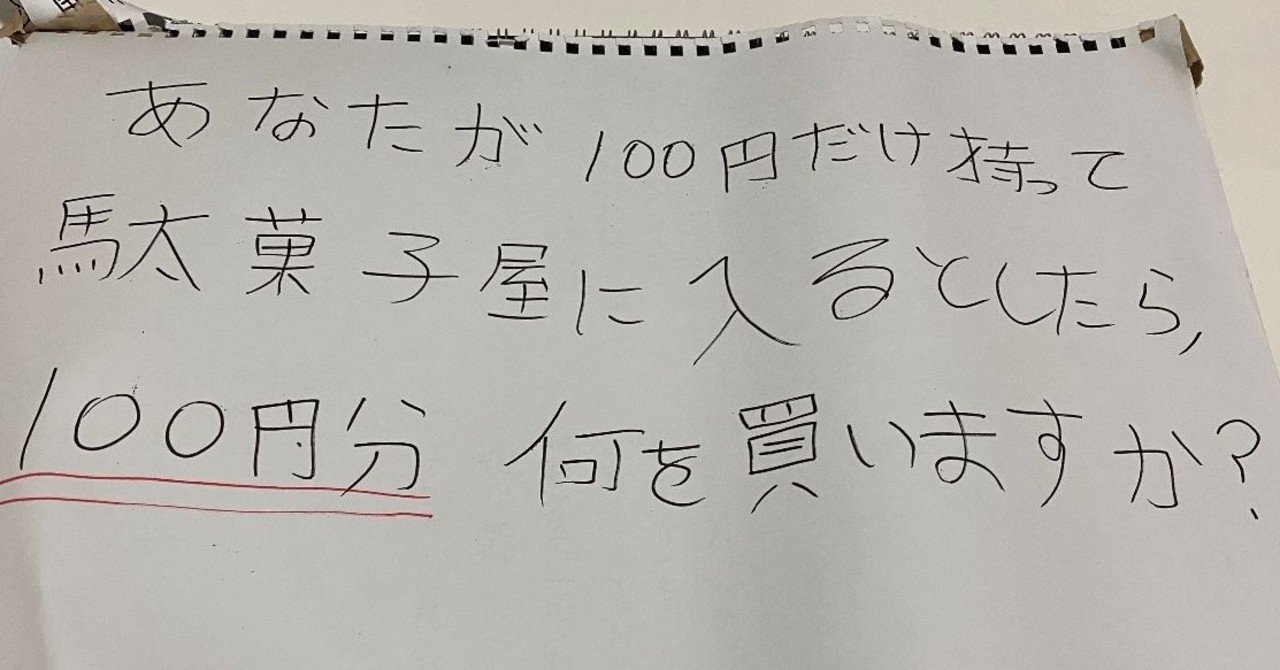 あなたが100円だけ持って
駄菓子屋に入るとしたら,
100円分 何を買いますか?